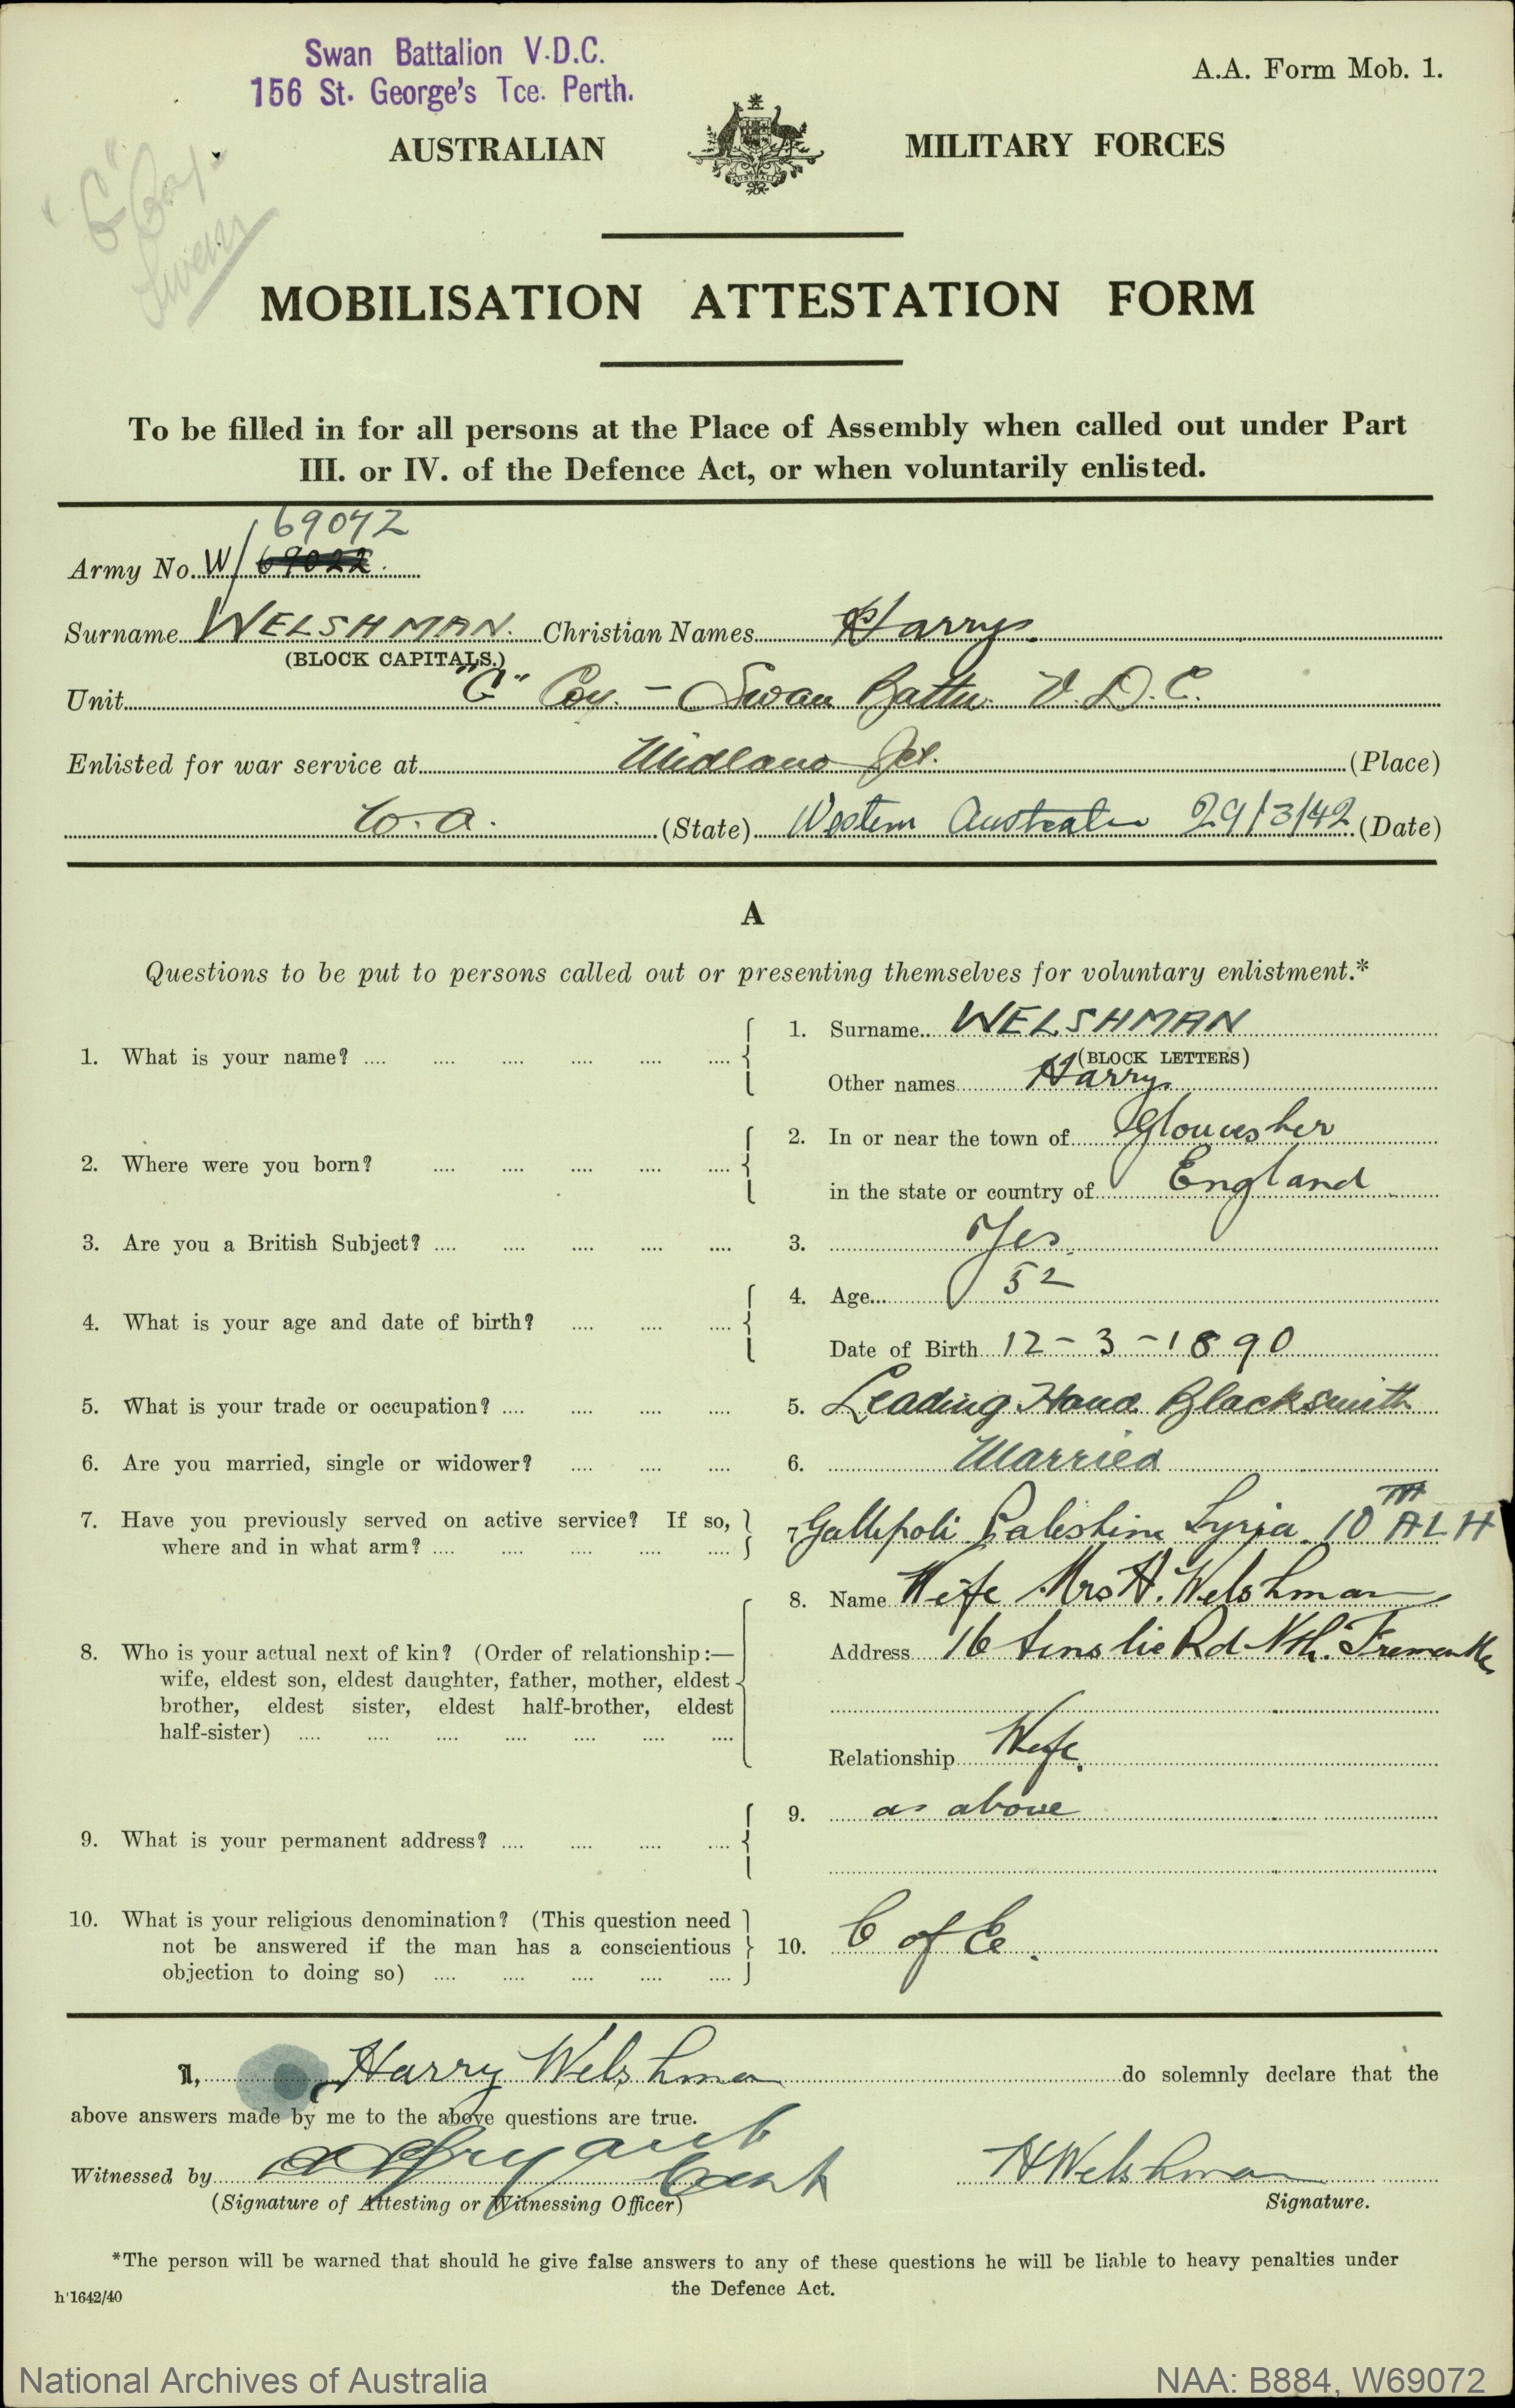 Swan Battalion V.D.C.
156 St. George's Tce. Perth.
A.A. Form Mob. 1.
"G" Coy.
Swan
AUSTRALIAN MILITARY FORCES
AUSTRALIA
MOBILISATION ATTESTATION FORM
To be filled in for all persons at the Place of Assembly when called out under Part
III. or IV. of the Defence Act, or when voluntarily enlisted.
69072
Army No. W/ 69022
Surname WELSHMAN. Christian Names Harry.
(BLOCK CAPITALS.)
Unit "G" Coy. - Swan Battn. V.D.C.
Enlisted for war service at Midland Jct. (Place)
W.A. (State) Western Australia 29/3/42 (Date)
A
Questions to be put to persons called out or presenting themselves for voluntary enlistment.*
1. What is your name? .... 1. Surname WELSHMAN
(BLOCK LETTERS)
Other names Harry.
2. Where were you born? .... 2. In or near the town of Gloucester
in the state or country of England
3. Are you a British Subject? .... 3. Yes.
4. What is your age and date of birth? .... 4. Age 52
Date of Birth 12-3-1890
5. What is your trade or occupation? .... 5. Leading Hand Blacksmith
6. Are you married, single or widower? .... 6. Married
7. Have you previously served on active service? If so, 7 Gallipoli Palestine Syria. 10TH ALH
where and in what arm? ....
8. Name Wife Mrs H. Welshman
8. Who is your actual next of kin? (Order of relationship:— Address 16 Ainslie Rd Nth. Fremantle
wife, eldest son, eldest daughter, father, mother, eldest
brother, eldest sister, eldest half-brother, eldest
half-sister) .... Relationship Wife.
9. What is your permanent address? .... 9. as above
10. What is your religious denomination? (This question need
not be answered if the man has a conscientious 10. C of E.
objection to doing so) ....
I, Harry Welshman do solemnly declare that the
above answers made by me to the above questions are true.
Witnessed by Capt H Welshman
(Signature of Attesting or Witnessing Officer) Signature.
*The person will be warned that should he give false answers to any of these questions he will be liable to heavy penalties under
the Defence Act.
h'1642/40
National Archives of Australia NAA: B884, W69072